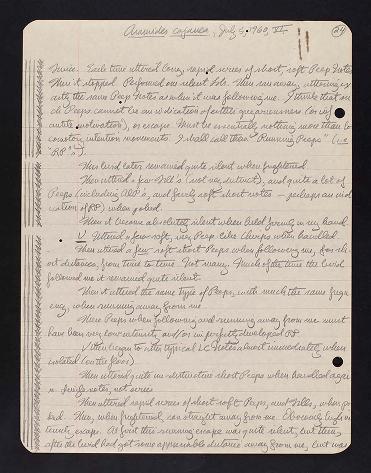 Aramides cajanea, July 3, 1960, VI
24
twice. Each time uttered long, rapid series of short, soft Peep Notes
When it stopped. Performed one silent Bob. Then ran away, uttering ex-
actly the same Peep Notes as when it was following me. I think that such
Peeps cannot be an indication of either gregariousness (or inf
antile motivation), or escape. Must be essentially nothing more than lo
comotory intention movements. I shall call them "Running Peeps" (i.e.
"RP's").
This bird later remained quite silent when frightened.
Then uttered a few (not very distinct), and quite a lot of
Peeps (including RP's, and fairly soft short notes - perhaps an indi
cation of RP) when poked.
Then it became absolutely silent when held firmly in my hand.
V. Uttered a few soft, very Peep like Chirps when handled.
Then uttered a few soft short Peeps when following me, from sh
ort distances, from time to time. Not many. Much of the time the bird
followed me it remained quite silent.
Then it uttered the same type of Peeps, with much the same frequ
ency, when running away from me.
These Peeps when following and running away from me must
have been very low intensity and/or imperfectly developed RP.
Then began to utter typical LC Notes almost immediately when
isolated (on the floor).
Then uttered quite indistinctive short Peeps when handled again
Single notes, not series.
Then uttered rapid series of short soft Peeps, and, when po
ked. Then, when frightened, ran straight away from me. Obviously high in
tensity escape. At first this running escape was quite silent, but then,
after the bird had got some appreciable distance away from me, but was